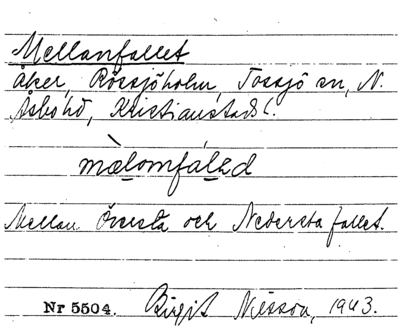 Mellanfallet
Åker, Rössjöholm, Tossjö sn, N.
Åsbo hd, Kristianstads l.
mæ̀lomfál̠ed
Mellan Översta och Nedersta fallet.
Nr 5504. Birgit Nilsson, 1943.